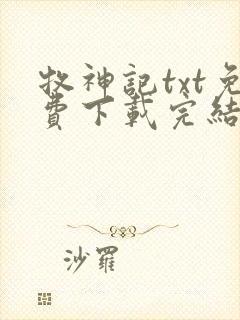 牧神記txt免
費下載完結
沙羅